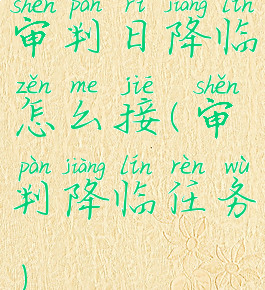 shěn pàn rì jiàng lín
审判日降临
zěn me jiē shěn
怎么接(审
pàn jiàng lín rèn wù
判降临任务
)